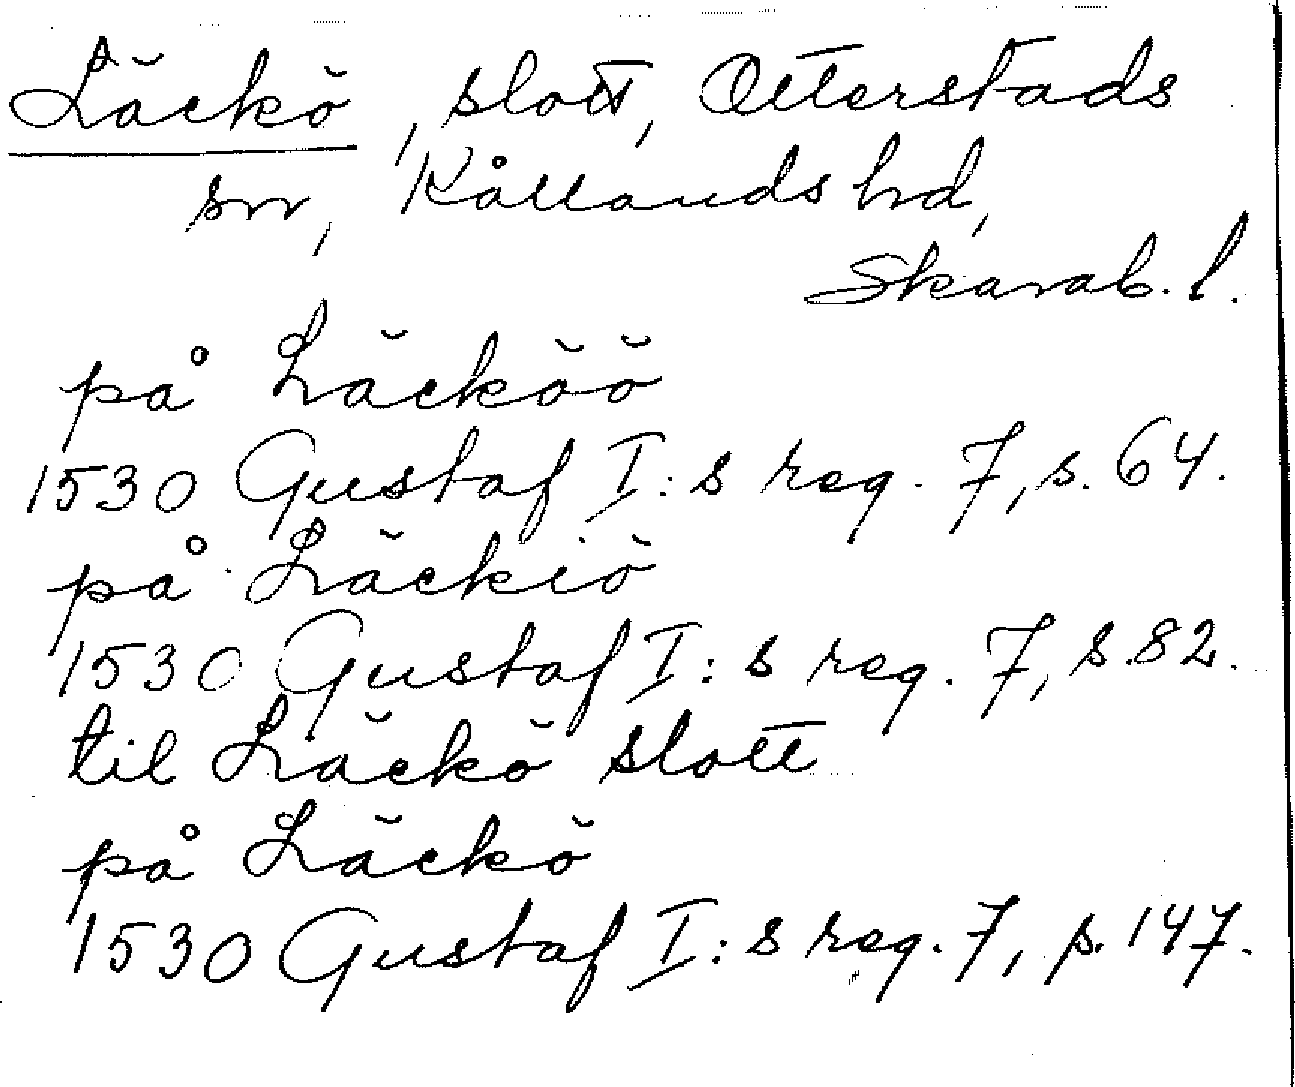 Läckö, slott, Otterstads
sn, Kållands hd,
Skarab. l.
på Läcköö
1530 Gustaf I:s reg. 7, s. 64.
på Läckiö
1530 Gustaf I:s reg. 7, s. 82.
til Läckö slott
på Läckö
1530 Gustaf I:s reg. 7, s. 147.